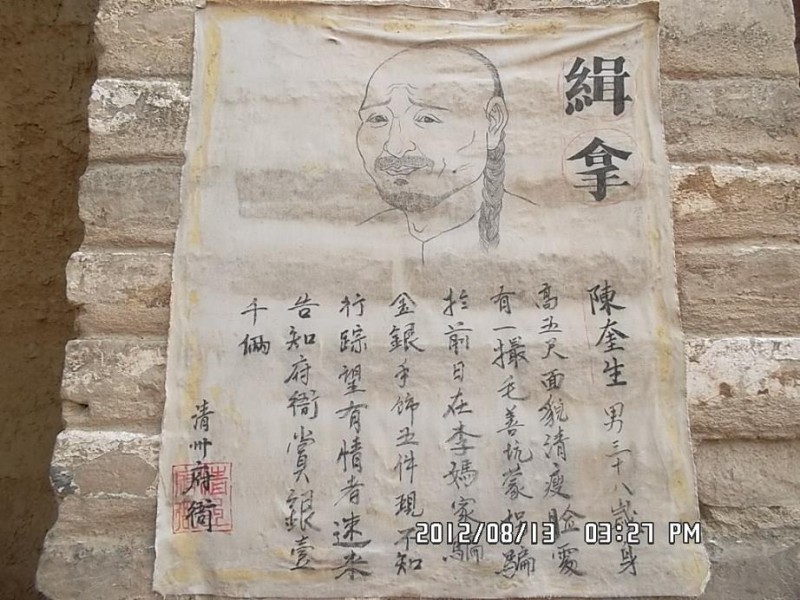 緝拿
陳奎生 男三十八歲身
高五尺面貌清瘦臉
有一撮毛善坑蒙拐騙
扵前日在李媽家騙
金銀手飾五件現不知
行踪望有情者速来
告知府衙賞銀壹
千倆
清州府衙
2012/08/13 03:27 PM